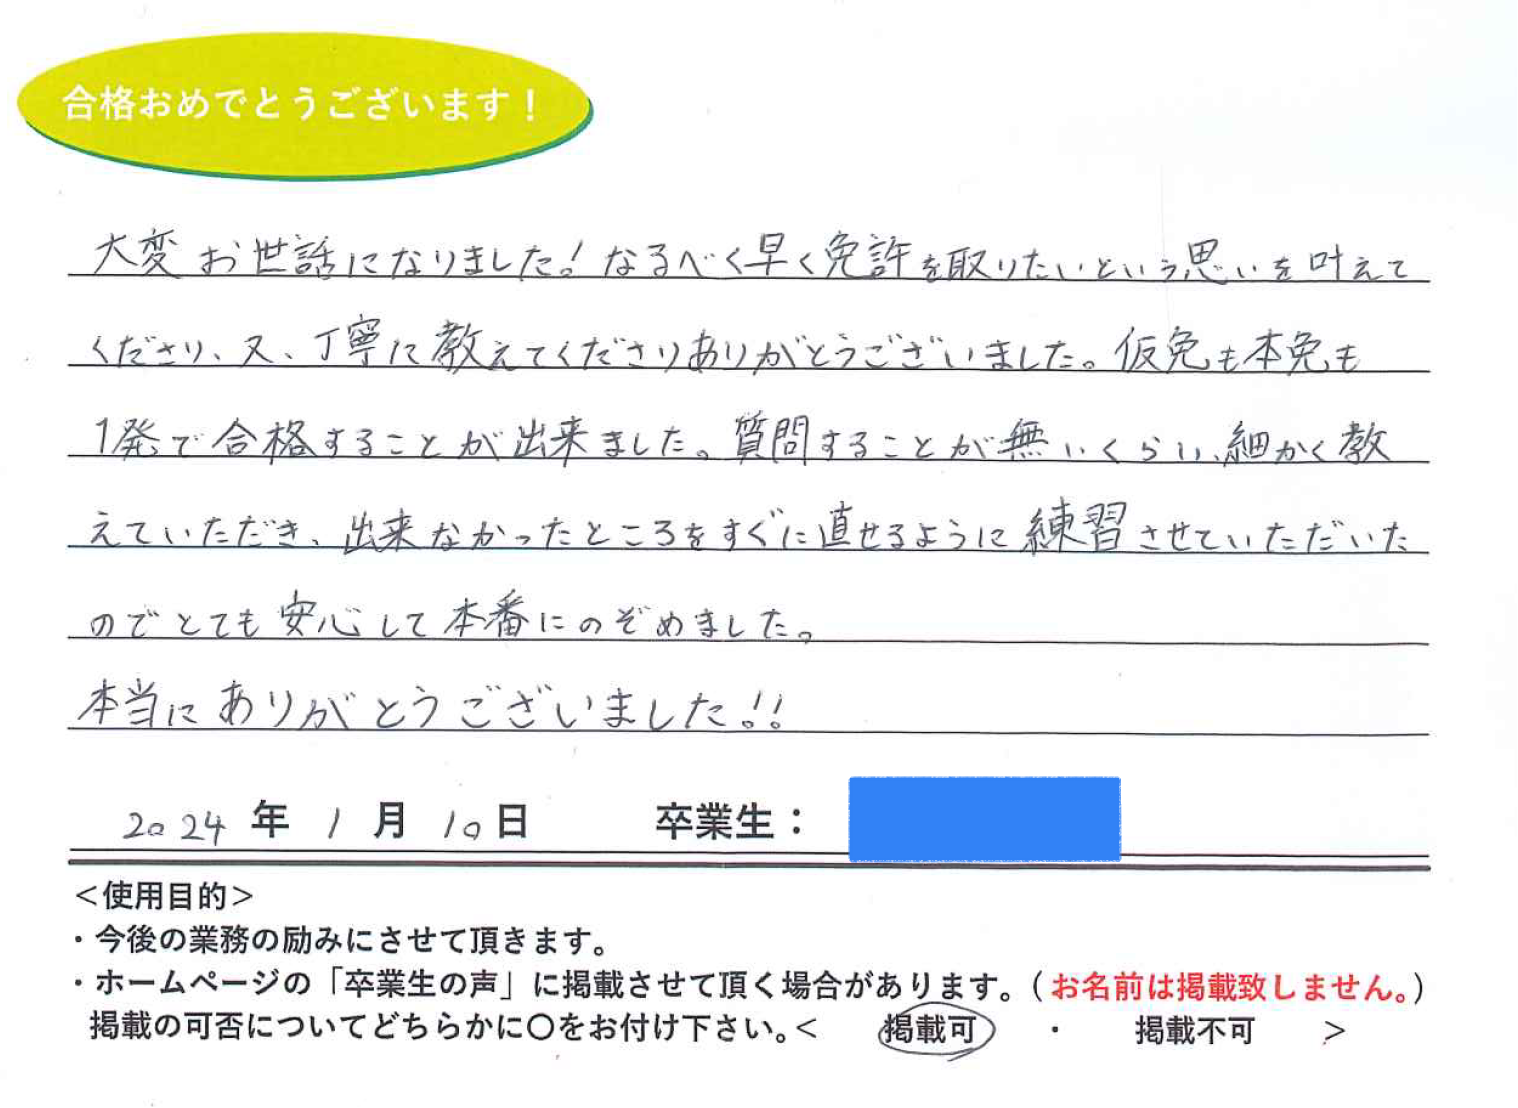 合格おめでとうございます！
大変お世話になりました！なるべく早く免許を取りたいという思いを叶えて
くださり、又、丁寧に教えてくださりありがとうございました。仮免も本免も
1発で合格することが出来ました。質問することが無いくらい、細かく教
えていただき、出来なかったところをすぐに直せるように練習させていただいた
のでとても安心して本番にのぞめました。
本当にありがとうございました！！
2024 年 1 月 10 日 卒業生：
＜使用目的＞
・今後の業務の励みにさせて頂きます。
・ホームページの「卒業生の声」に掲載させて頂く場合があります。（お名前は掲載致しません。）
掲載の可否についてどちらかに〇をお付け下さい。＜ 掲載可 ・ 掲載不可 ＞